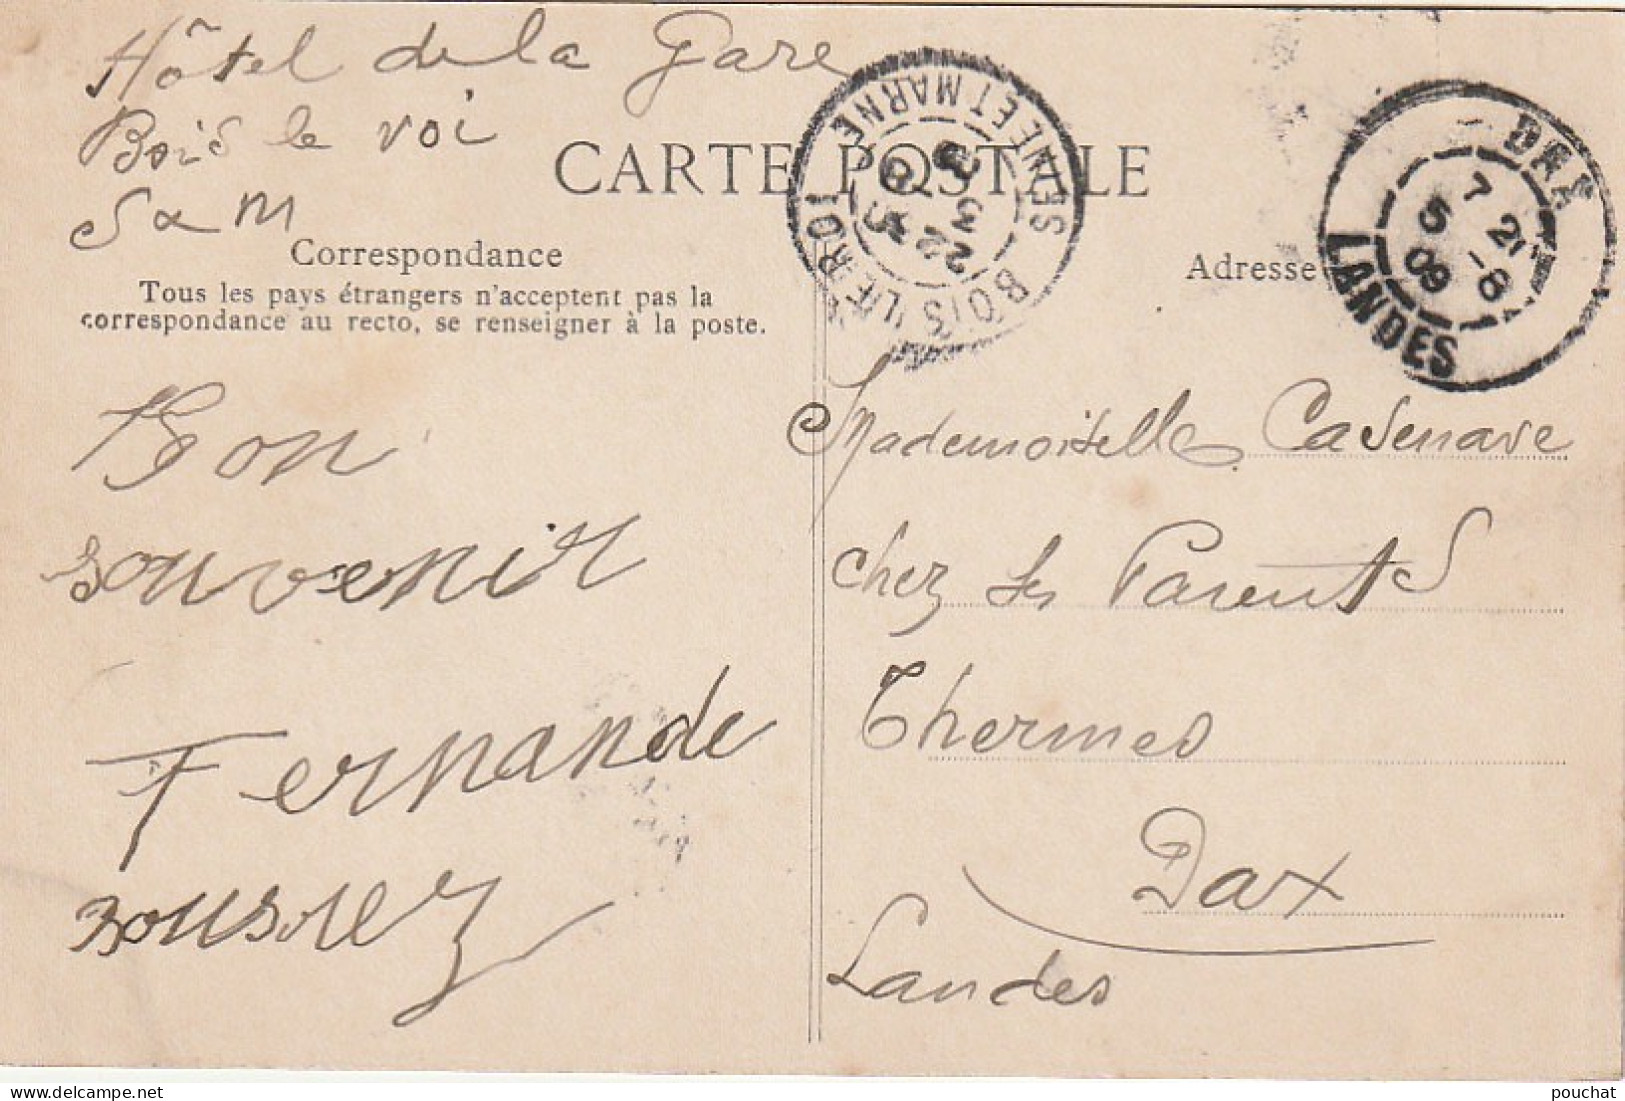 Hôtel de la Gare
Bois le voi
S & M
CARTE POSTALE
Correspondance
Tous les pays étrangers n'acceptent pas la
correspondance au recto, se renseigner à la poste.
Bon
souvenir
Fernande
BOIS LE ROI
SEINE ET MARNE
22
3
Adresse
DAX
7 21
5 -8
09
LANDES
Mademoiselle Casenave
chez ses Parents
Thermes
Dax
Landes
pouchat